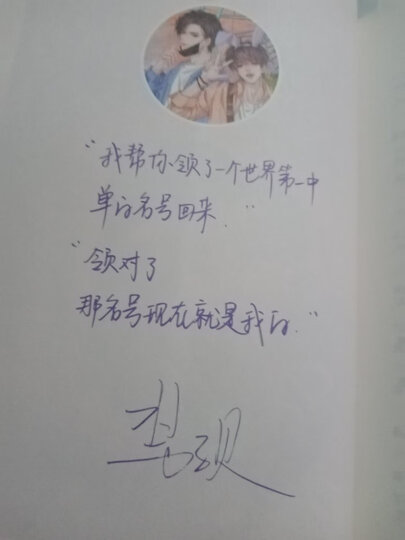 “我帮你领了一个世界第一中
单的名号回来.”
“领对了
那名号现在就是我的.”